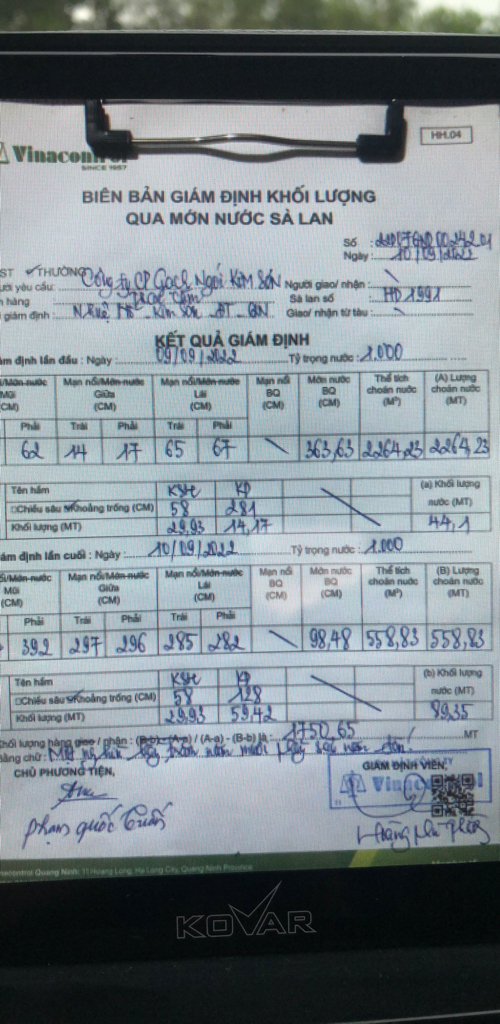 Vinacontrol
SINCE 1957
HH.04
BIÊN BẢN GIÁM ĐỊNH KHỐI LƯỢNG
QUA MỚN NƯỚC SÀ LAN
Số :
Ngày : 10/09/2022
ST ✓ THƯỜNG
ười yêu cầu: Công ty CP Gạch Ngói Kim Sơn Người giao/ nhận :
n hàng : Than cám Sà lan số : HD 1991
i giám định : Kim Sơn - ĐT - QN Giao/ nhận từ tàu :
KẾT QUẢ GIÁM ĐỊNH
ám định lần đầu : Ngày : 09/09/2022 Tỷ trọng nước : 1.000
ổi/Mớn nước Mũi (CM) Mạn nổi/Mớn nước Giữa (CM) Mạn nổi/Mớn nước Lái (CM) Mạn nổi BQ (CM) Mớn nước BQ (CM) Thể tích choán nước (M³) (A) Lượng choán nước (MT)
Phải Trái Phải Trái Phải
62 14 17 65 67 363,63 2264,23 2264,23
Tên hầm (a) Khối lượng nước (MT)
Chiều sâu Khoảng trống (CM) 58 281
Khối lượng (MT) 29,93 14,17 44,1
ám định lần cuối : Ngày : 10/09/2022 Tỷ trọng nước : 1.000
ổi/Mớn nước Mũi (CM) Mạn nổi/Mớn nước Giữa (CM) Mạn nổi/Mớn nước Lái (CM) Mạn nổi BQ (CM) Mớn nước BQ (CM) Thể tích choán nước (M³) (B) Lượng choán nước (MT)
Phải Trái Phải Trái Phải
392 297 296 285 282 98,48 558,83 558,83
Tên hầm (b) Khối lượng nước (MT)
Chiều sâu Khoảng trống (CM) 58 128
Khối lượng (MT) 29,93 59,42 89,35
Khối lượng hàng giao / nhận : (B-b) - (A-a) / (A-a) - (B-b) là : 1750,65 MT
bằng chữ : Một nghìn bảy trăm năm mươi phẩy sáu năm tấn!
CHỦ PHƯƠNG TIỆN, GIÁM ĐỊNH VIÊN,
Phạm Quốc Tuấn
nacontrol Quang Ninh: 11 Hoang Long, Ha Long City, Quang Ninh Province
KOVAR